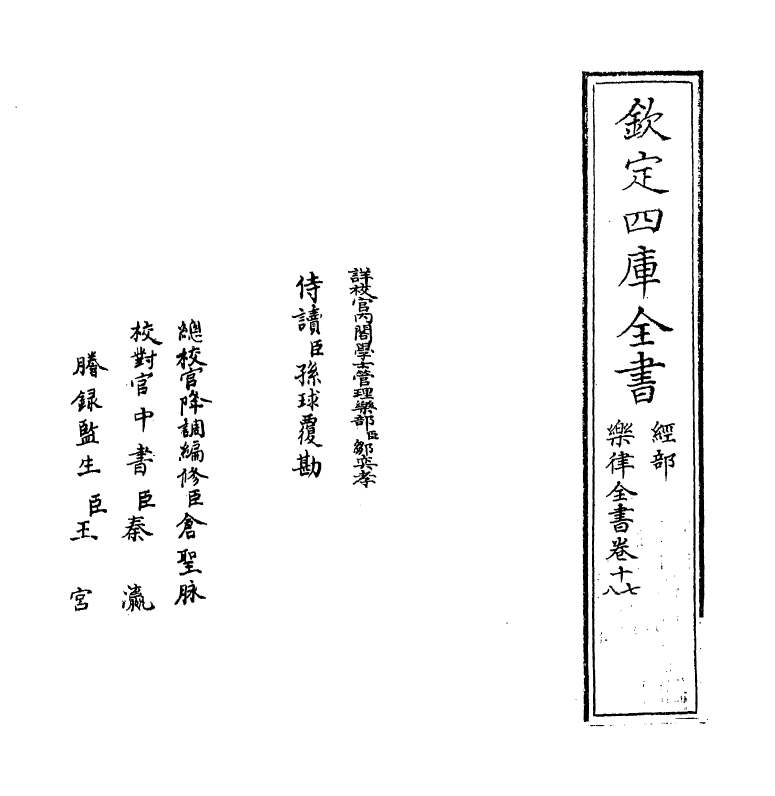 欽定四庫全書
經部
樂律全書卷十七
八
詳校官內閣學士管理樂部臣鄒奕孝
侍讀臣孫球覆勘
總校官降調編修臣倉聖脉
校對官中書臣秦瀛
謄錄監生臣王宮